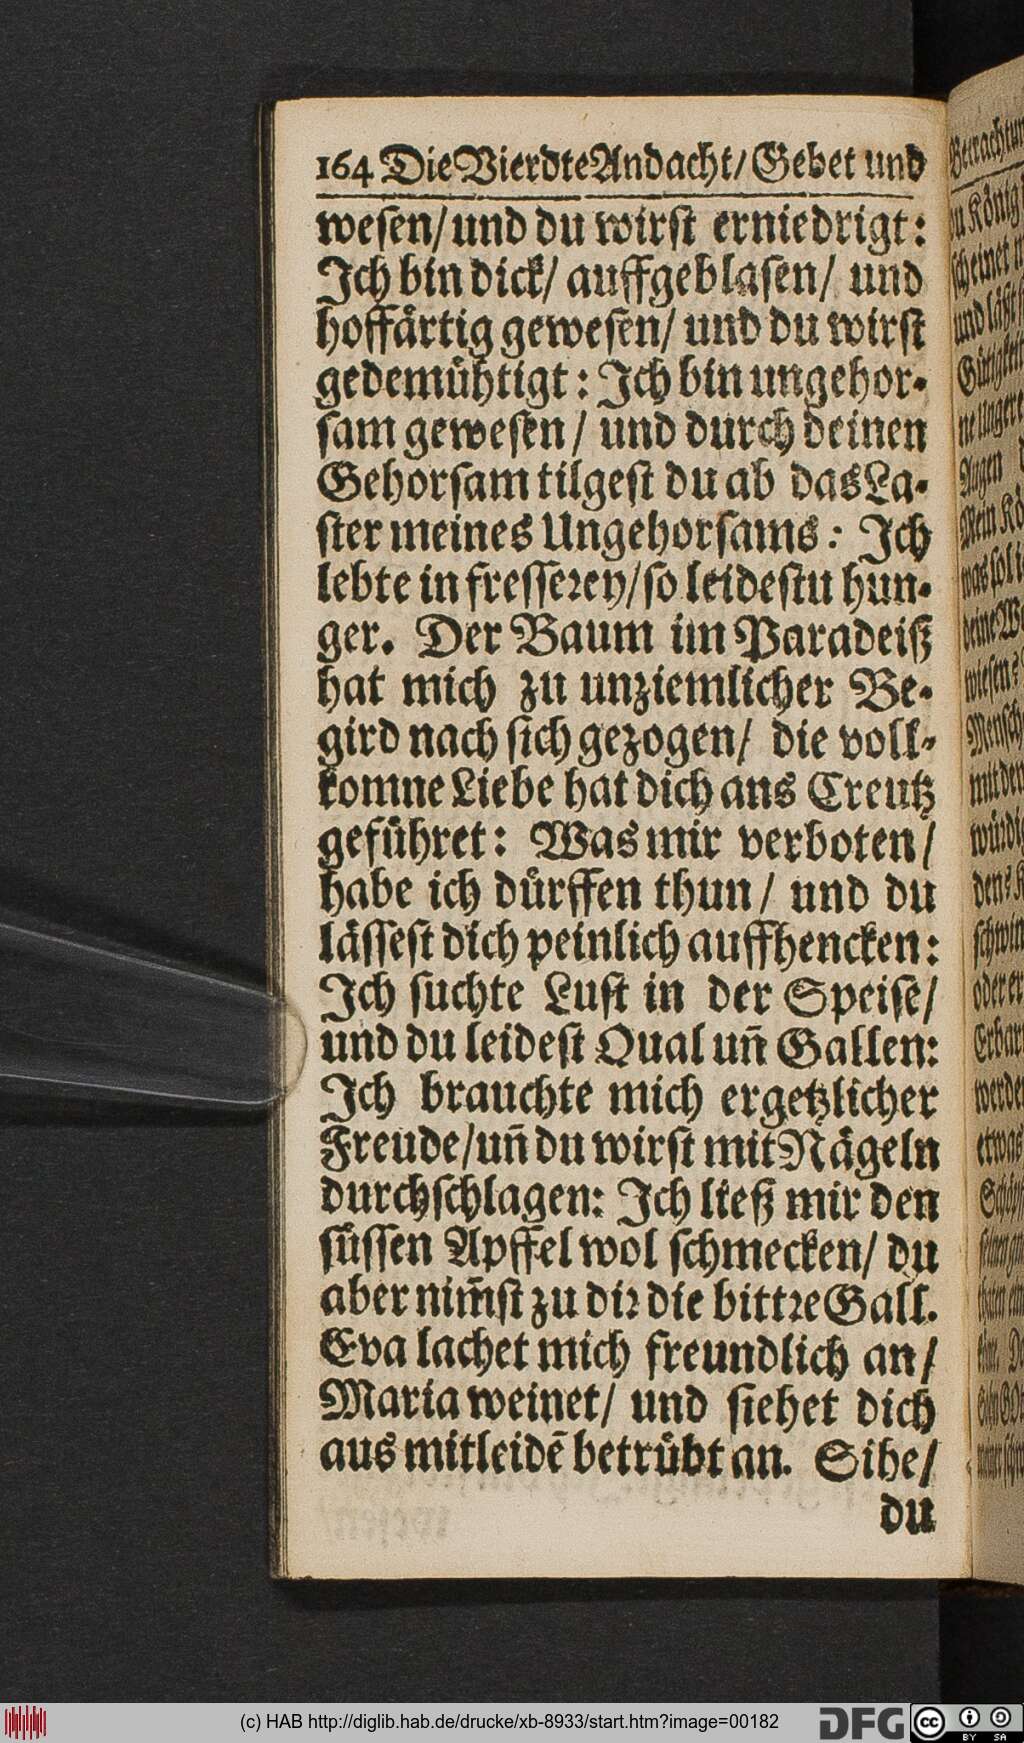 164 Die Vierdte Andacht/ Gebet und
wesen/ und du wirst erniedrigt:
Ich bin dick/ auffgeblasen/ und
hoffärtig gewesen/ und du wirst
gedemühtigt: Ich bin ungehor-
sam gewesen/ und durch deinen
Gehorsam tilgest du ab das La-
ster meines Ungehorsams: Ich
lebte in fresserey/ so leidestu hun-
ger. Der Baum im Paradeiß
hat mich zu unziemlicher Be-
gird nach sich gezogen/ die voll-
komne Liebe hat dich ans Creutz
geführet: Was mir verboten/
habe ich dürffen thun/ und du
lässest dich peinlich auffhencken:
Ich suchte Lust in der Speise/
und du leidest Qual uñ Gallen:
Ich brauchte mich ergetzlicher
Freude/ uñ du wirst mit Nägeln
durchschlagen: Ich ließ mir den
süssen Apffel wol schmecken/ du
aber nim̃st zu dir die bittre Gall.
Eva lachet mich freundlich an/
Maria weinet/ und siehet dich
aus mitleidẽ betrübt an. Sihe/
du
(c) HAB http://diglib.hab.de/drucke/xb-8933/start.htm?image=00182
DFG
cc BY SA